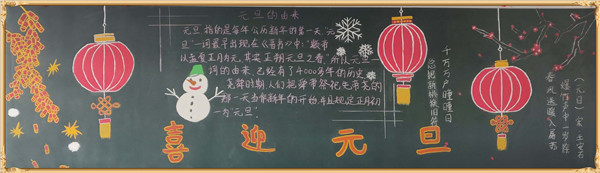 元旦的由来
元旦,指的是每年公历新年的第一天."元
旦"一词最早出现在《晋书》中:"颛帝
以孟春正月为元,其实正朔元旦之春"所以元旦一
词的由来,已经有了4000多年的历史
尧舜时期人们把舜帝祭祀先帝尧的
那一天当作新年的开始并且规定正月初
一为元旦.
千万户曈曈日
总把新桃换旧符
《元日》宋 王安石
爆竹声中一岁除
春风送暖入屠苏
喜迎元旦